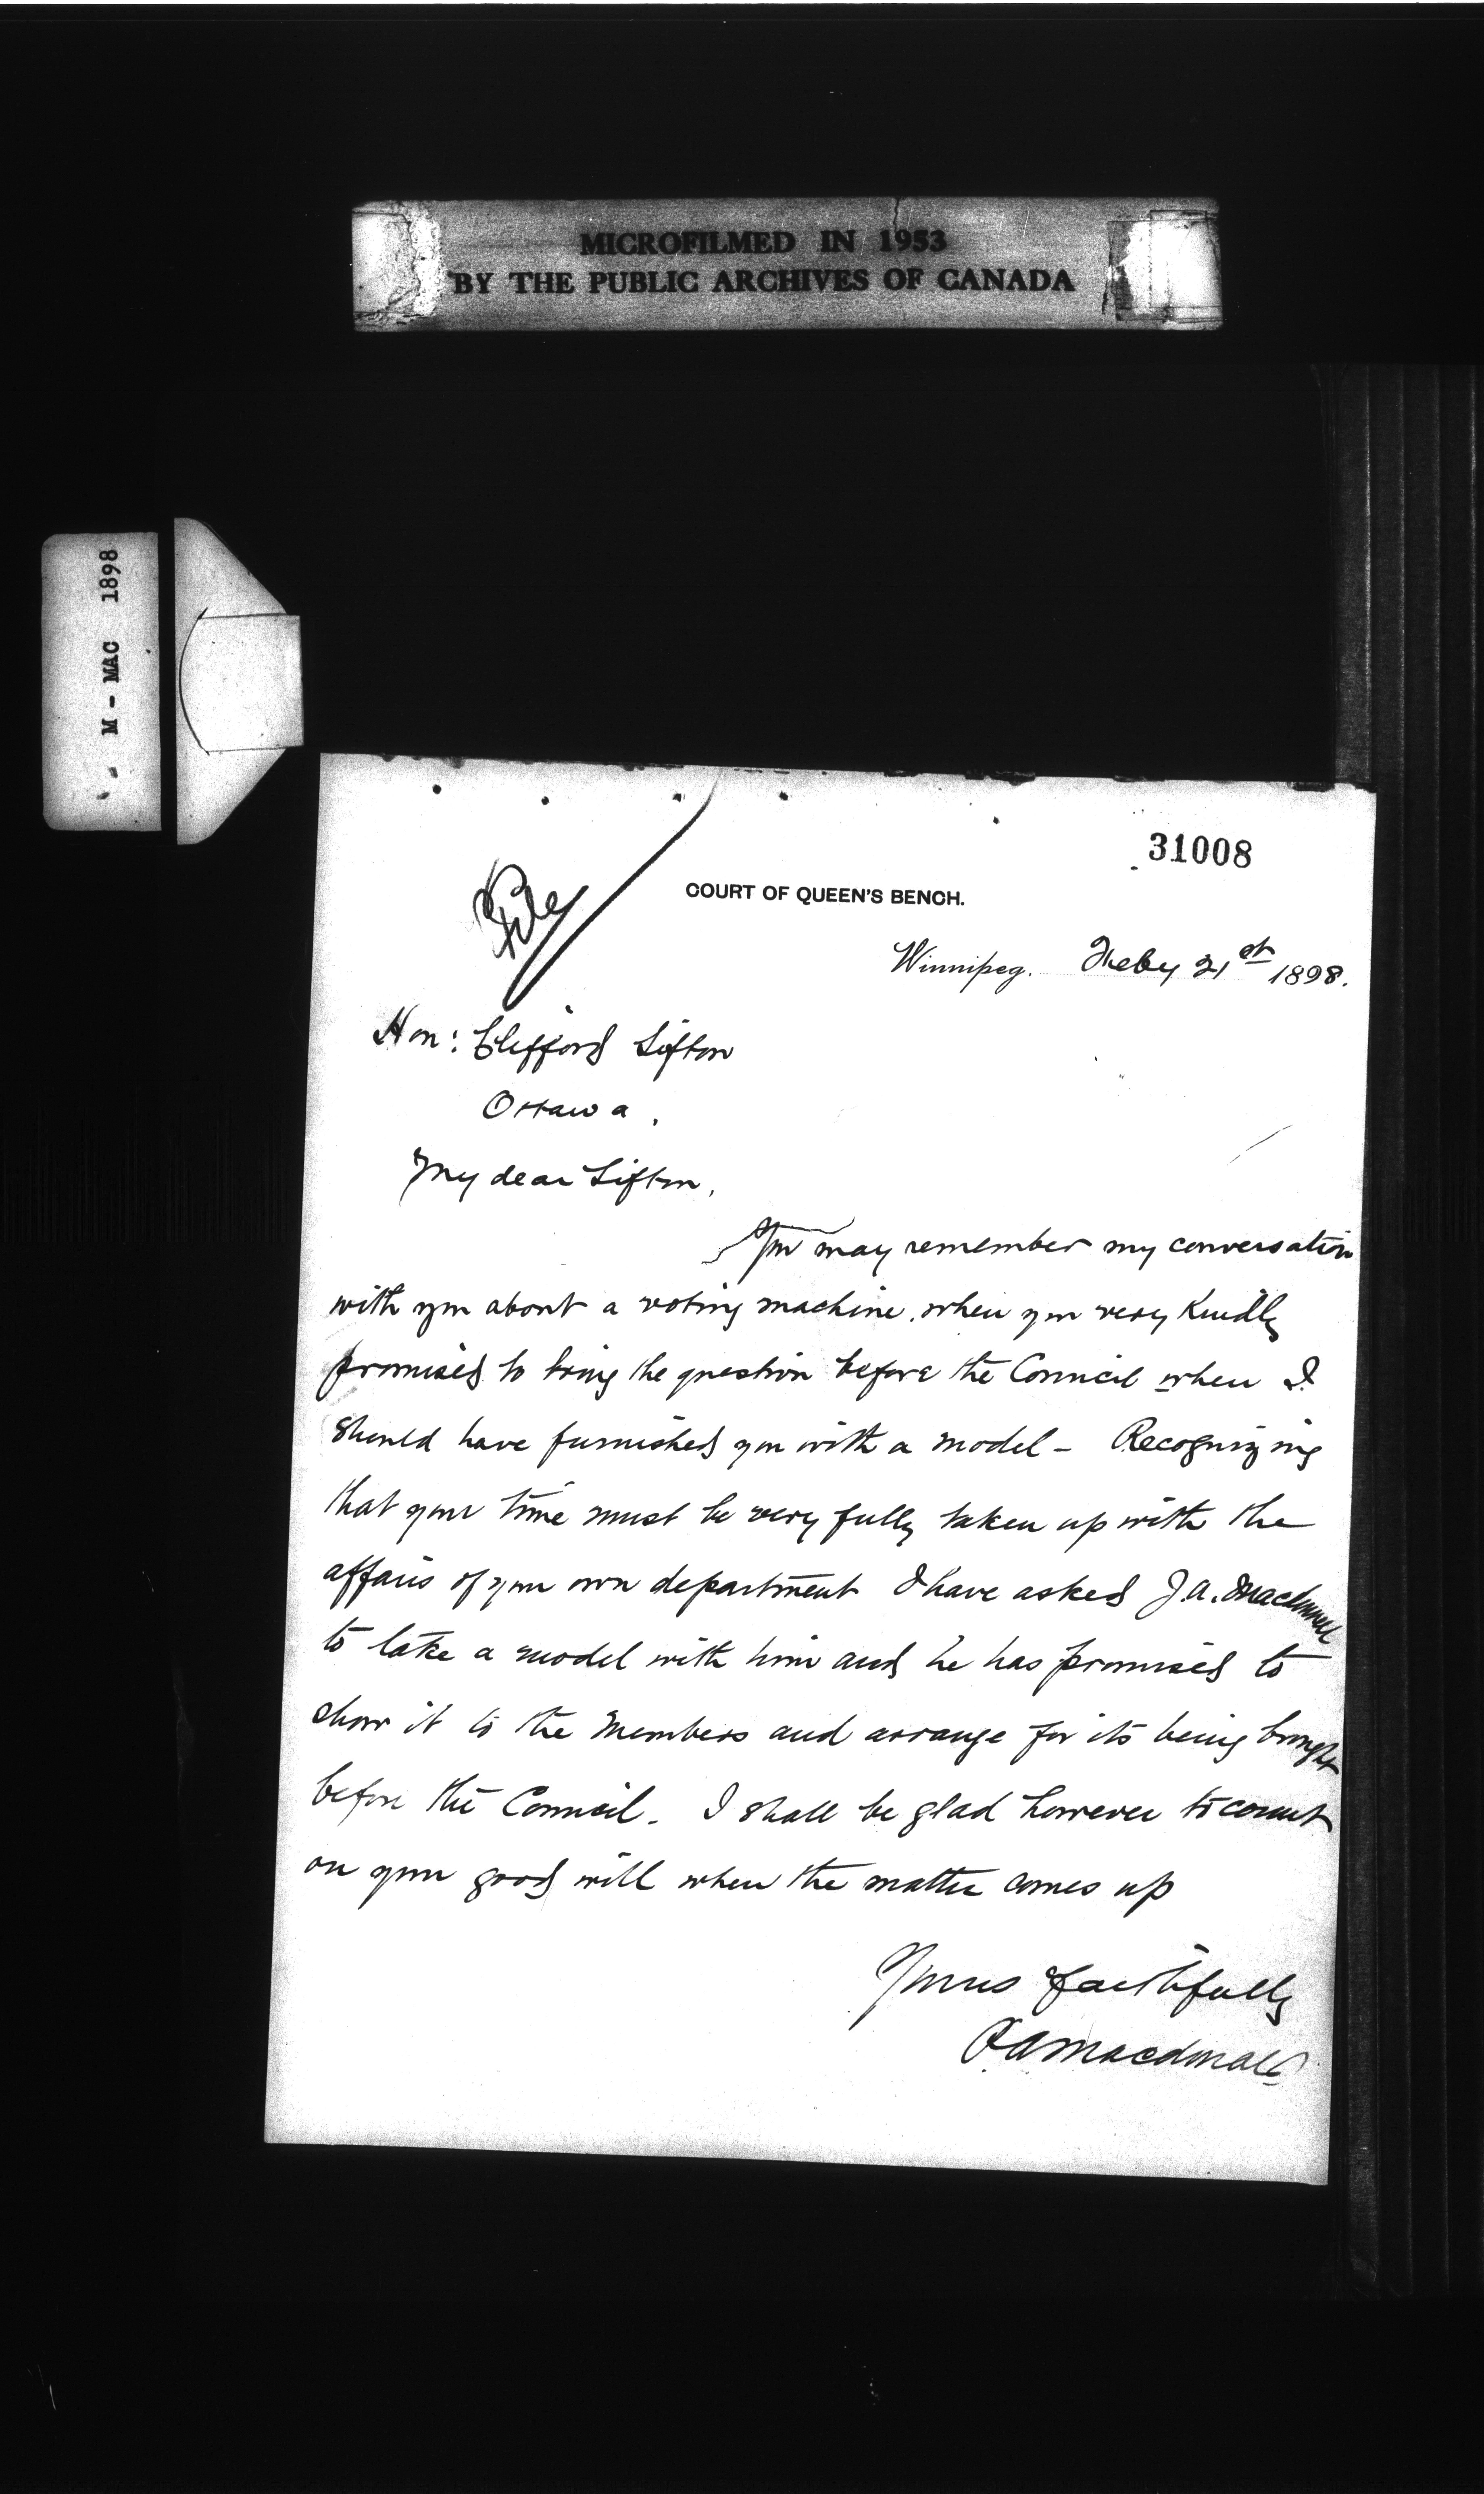 MICROFILMED IN 1953
BY THE PUBLIC ARCHIVES OF CANADA
M - MAC 1898
31008
File
COURT OF QUEEN'S BENCH.
Winnipeg. Feby 21st 1898.
Hon: Clifford Sifton
Ottawa.
My dear Sifton,
You may remember my conversation
with you about a voting machine. when you very Kindly
promised to bring the question before the Council when I
should have furnished you with a model - Recognizing
that your time must be very fully taken up with the
affairs of your own department I have asked J.A.
to take a model with him and he has promised to
show it to the Members and arrange for its being brought
before the Council. I shall be glad however to count
on your good will when the matter comes up
Yours faithfully
Macdonald